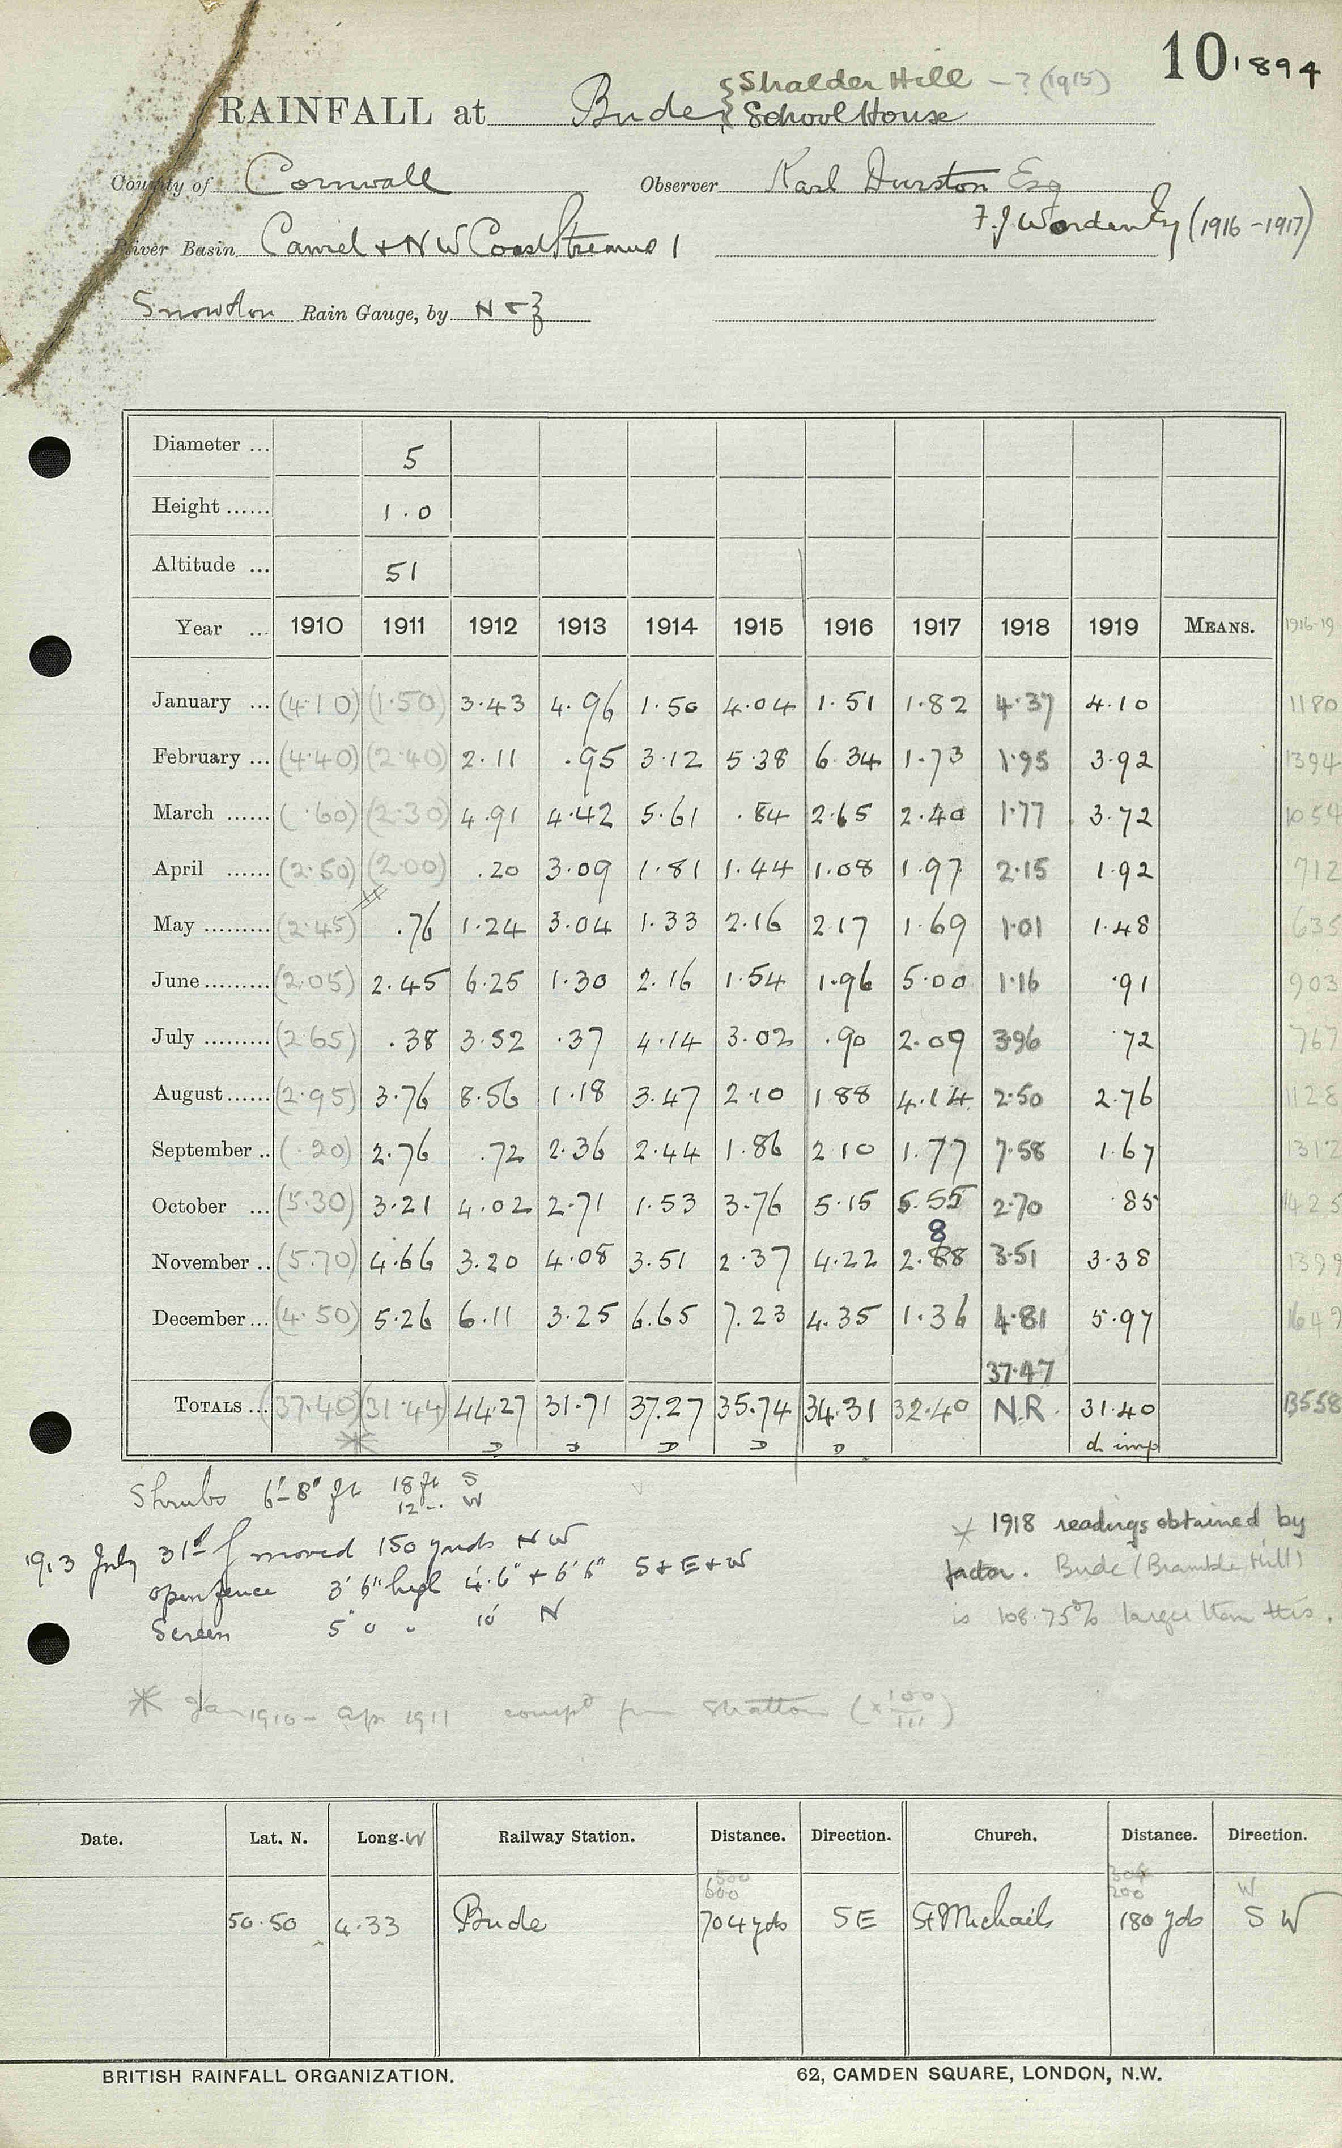 10 1894
Shalder Hill - ? (1915)
RAINFALL at Bude School House
County of Cornwall Observer Karl Durston Esq
F. J. Worden Esq (1916-1917)
River Basin Camel + NW Coast Streams 1
Snowdon Rain Gauge, by N & Z
Diameter ... 5
Height ...... 1.0
Altitude ... 51
Year ... 1910 1911 1912 1913 1914 1915 1916 1917 1918 1919 MEANS. 1916-19
January ... (4.10) (1.50) 3.43 4.96 1.50 4.04 1.51 1.82 4.37 4.10 1180
February ... (4.40) (2.40) 2.11 .95 3.12 5.38 6.34 1.73 1.95 3.92 1394
March ...... (.60) (2.30) 4.91 4.42 5.61 .84 2.65 2.40 1.77 3.72 1054
April ...... (2.50) (2.00) .20 3.09 1.81 1.44 1.08 1.97 2.15 1.92 712
May ......... (2.45) .76 1.24 3.04 1.33 2.16 2.17 1.69 1.01 1.48 635
June ......... (2.05) 2.45 6.25 1.30 2.16 1.54 1.96 5.00 1.16 .91 903
July ......... (2.65) .38 3.52 .37 4.14 3.02 .90 2.09 3.96 .72 767
August ...... (2.95) 3.76 8.56 1.18 3.47 2.10 1.88 4.14 2.50 2.76 1128
September .. (.20) 2.76 .72 2.36 2.44 1.86 2.10 1.77 7.58 1.67 1312
October ... (5.30) 3.21 4.02 2.71 1.53 3.76 5.15 5.55 2.70 .85 1425
8
November .. (5.70) 4.66 3.20 4.08 3.51 2.37 4.22 2.88 3.51 3.38 1399
December ... (4.50) 5.26 6.11 3.25 6.65 7.23 4.35 1.36 4.81 5.97 1649
37.47
TOTALS ... (37.40) (31.44) 44.27 31.71 37.27 35.74 34.31 32.40 N.R. 31.40 13558
* D D D D D d. imp
Shrubs 6'-8" ft 18 ft S
12 .. W
1913 July 31st moved 150 yards NW
open fence 3' 6" high 4'.6" + 6' 6" S + E + W
Screen 5' 0 " 10' N
* 1918 readings obtained by
factor. Bude (Bramble Hill)
is 108.75% larger than this.
* Jan 1910 - Apr 1911 compd from Stratton (x 100/111)
Date. Lat. N. Long. W Railway Station. Distance. Direction. Church. Distance. Direction.
1500 304
600 200 W
50.50 4.33 Bude 704 yds SE St Michaels 180 yds SW
BRITISH RAINFALL ORGANIZATION. 62, CAMDEN SQUARE, LONDON, N.W.